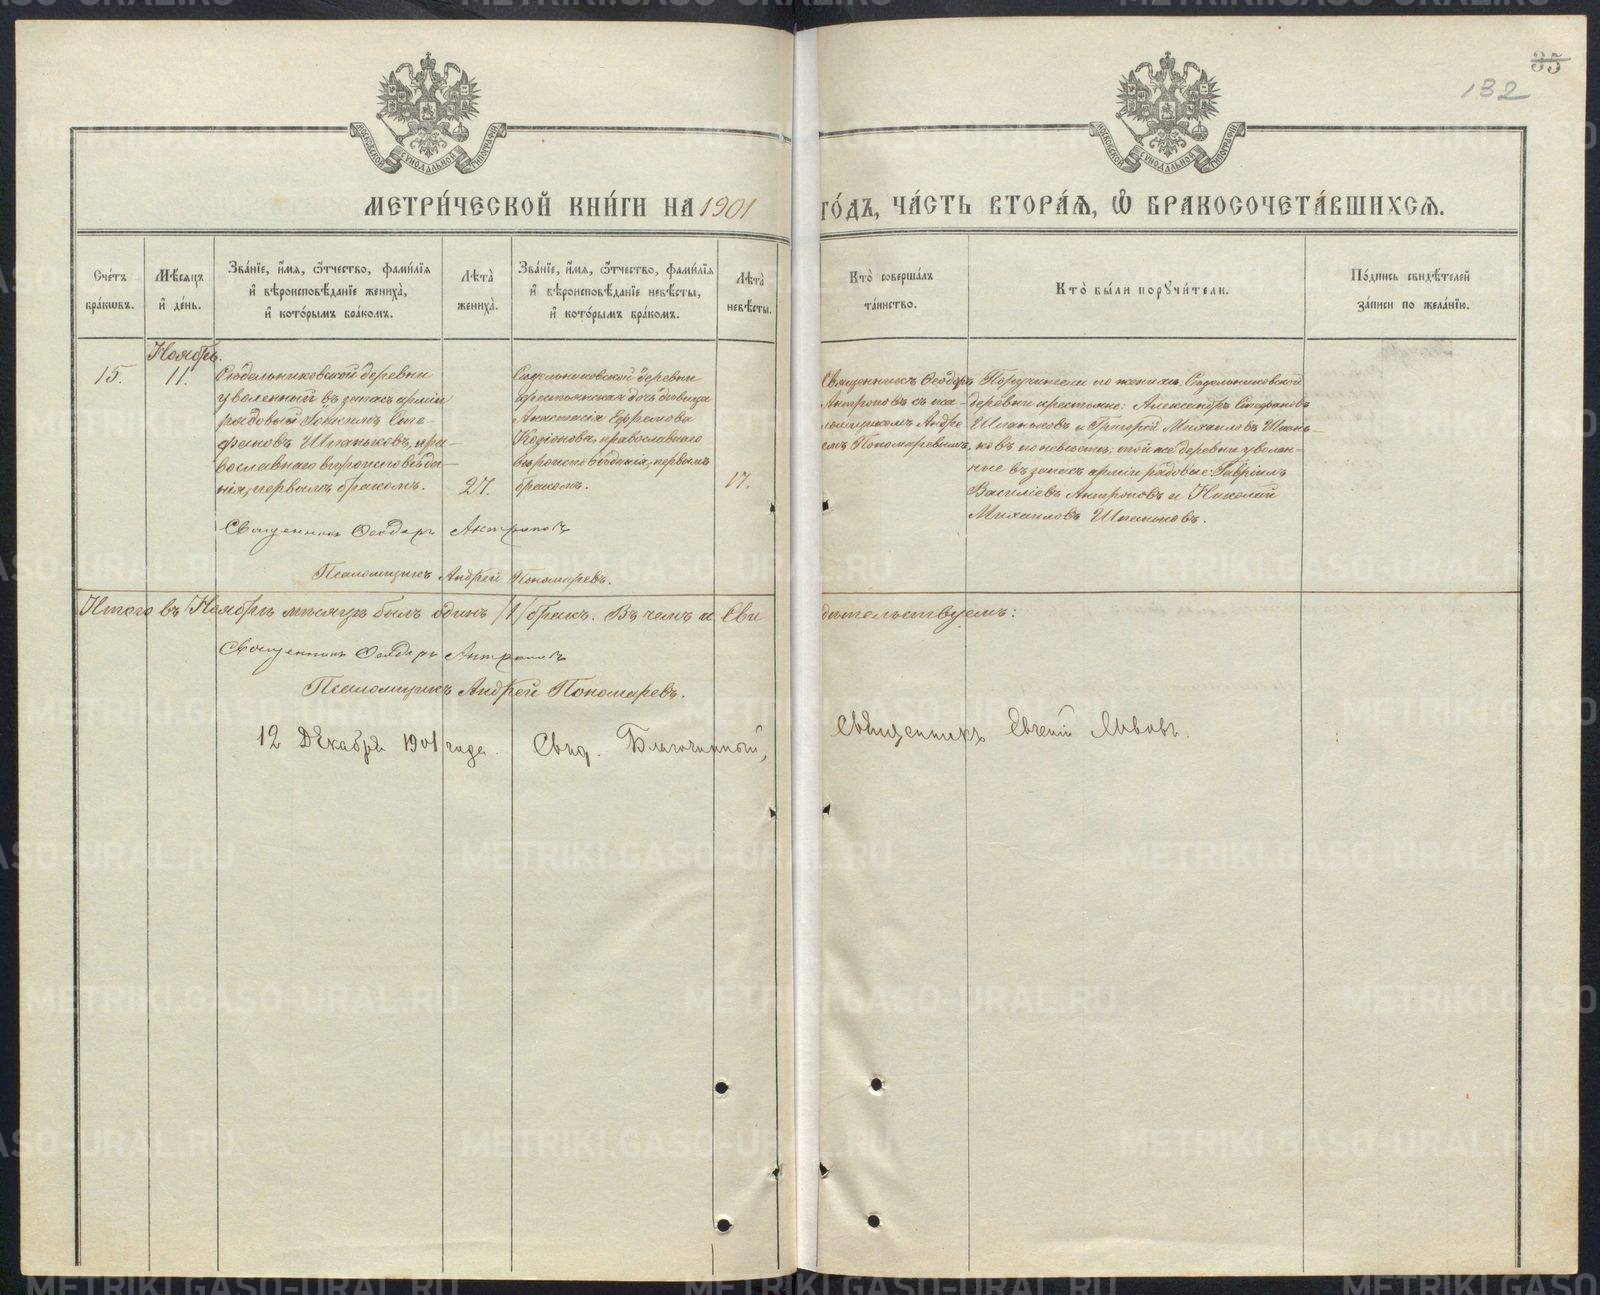 35
132
МОСКОВСКОЙ СѴНОДАЛЬНОЙ ТИПОГРАФІИ
МОСКОВСКОЙ СѴНОДАЛЬНОЙ ТИПОГРАФІИ
МЕТРИ́ЧЕСКОЙ КНИ́ГИ НА 1901 ГО́ДЪ, ЧА́СТЬ ВТОРА́Ѧ, Ѽ БРАКОСОЧЕТА́ВШИХСѦ.
Сче́тъ
бра́кѡвъ.
Мѣ́сѧцъ
и҆ де́нь.
Зва́нїе, и҆́мѧ, ѻ҆́тчество, фами́лїѧ
и҆ вѣроисповѣ́данїе жениха̀,
и҆ кото́рымъ бра́комъ.
Лѣта̀
жениха̀.
Зва́нїе, и҆́мѧ, ѻ҆́тчество, фами́лїѧ
и҆ вѣроисповѣ́данїе невѣ́сты,
и҆ кото́рымъ бра́комъ.
Лѣта̀
невѣ́сты.
Кто̀ соверша́лъ
та́инство.
Кто̀ бы́ли порꙋчи́тели.
По́дпись свидѣ́телей
за́писи по жела́нїю.
Ноябрь.
15.
11.
Сидельниковской деревни
уволенный въ запасъ арміи
рядовый Іоакимъ Сте-
фановъ Шпаньковъ, пра-
вославнаго вѣроисповѣда-
нія, первымъ бракомъ.
27.
Сидельниковской деревни
крестьянская дочь дѣвица
Анастасія Ефремова
православнаго
вѣроисповѣданія, первымъ
бракомъ.
17.
Священникъ Ѳеодоръ
Антроповъ съ пса-
ломщикомъ Андре
емъ Пономаревымъ.
Поручители по женихѣ: Сидельниковской
деревни крестьяне: Александръ Стефановъ
Шпаньковъ и Григорій Михаиловъ Шпань-
ковъ, по невѣстѣ: той же деревни уволен-
ные въ запасъ арміи рядовые: Гавріилъ
Василіевъ Антроповъ и Николай
Михаиловъ Шпаньковъ.
Священникъ Ѳеодоръ Антроповъ
Псаломщикъ Андрей Пономаревъ.
Итого въ Ноябрѣ мѣсяцѣ былъ одинъ /1/ бракъ. Въ чемъ и свидѣтельствуемъ:
Священникъ Ѳеодоръ Антроповъ
Псаломщикъ Андрей Пономаревъ.
12 Декабря 1901 года. Свид. Благочинный, Священникъ Евгеній Львовъ.
METRIKI.GASO-URAL.RU